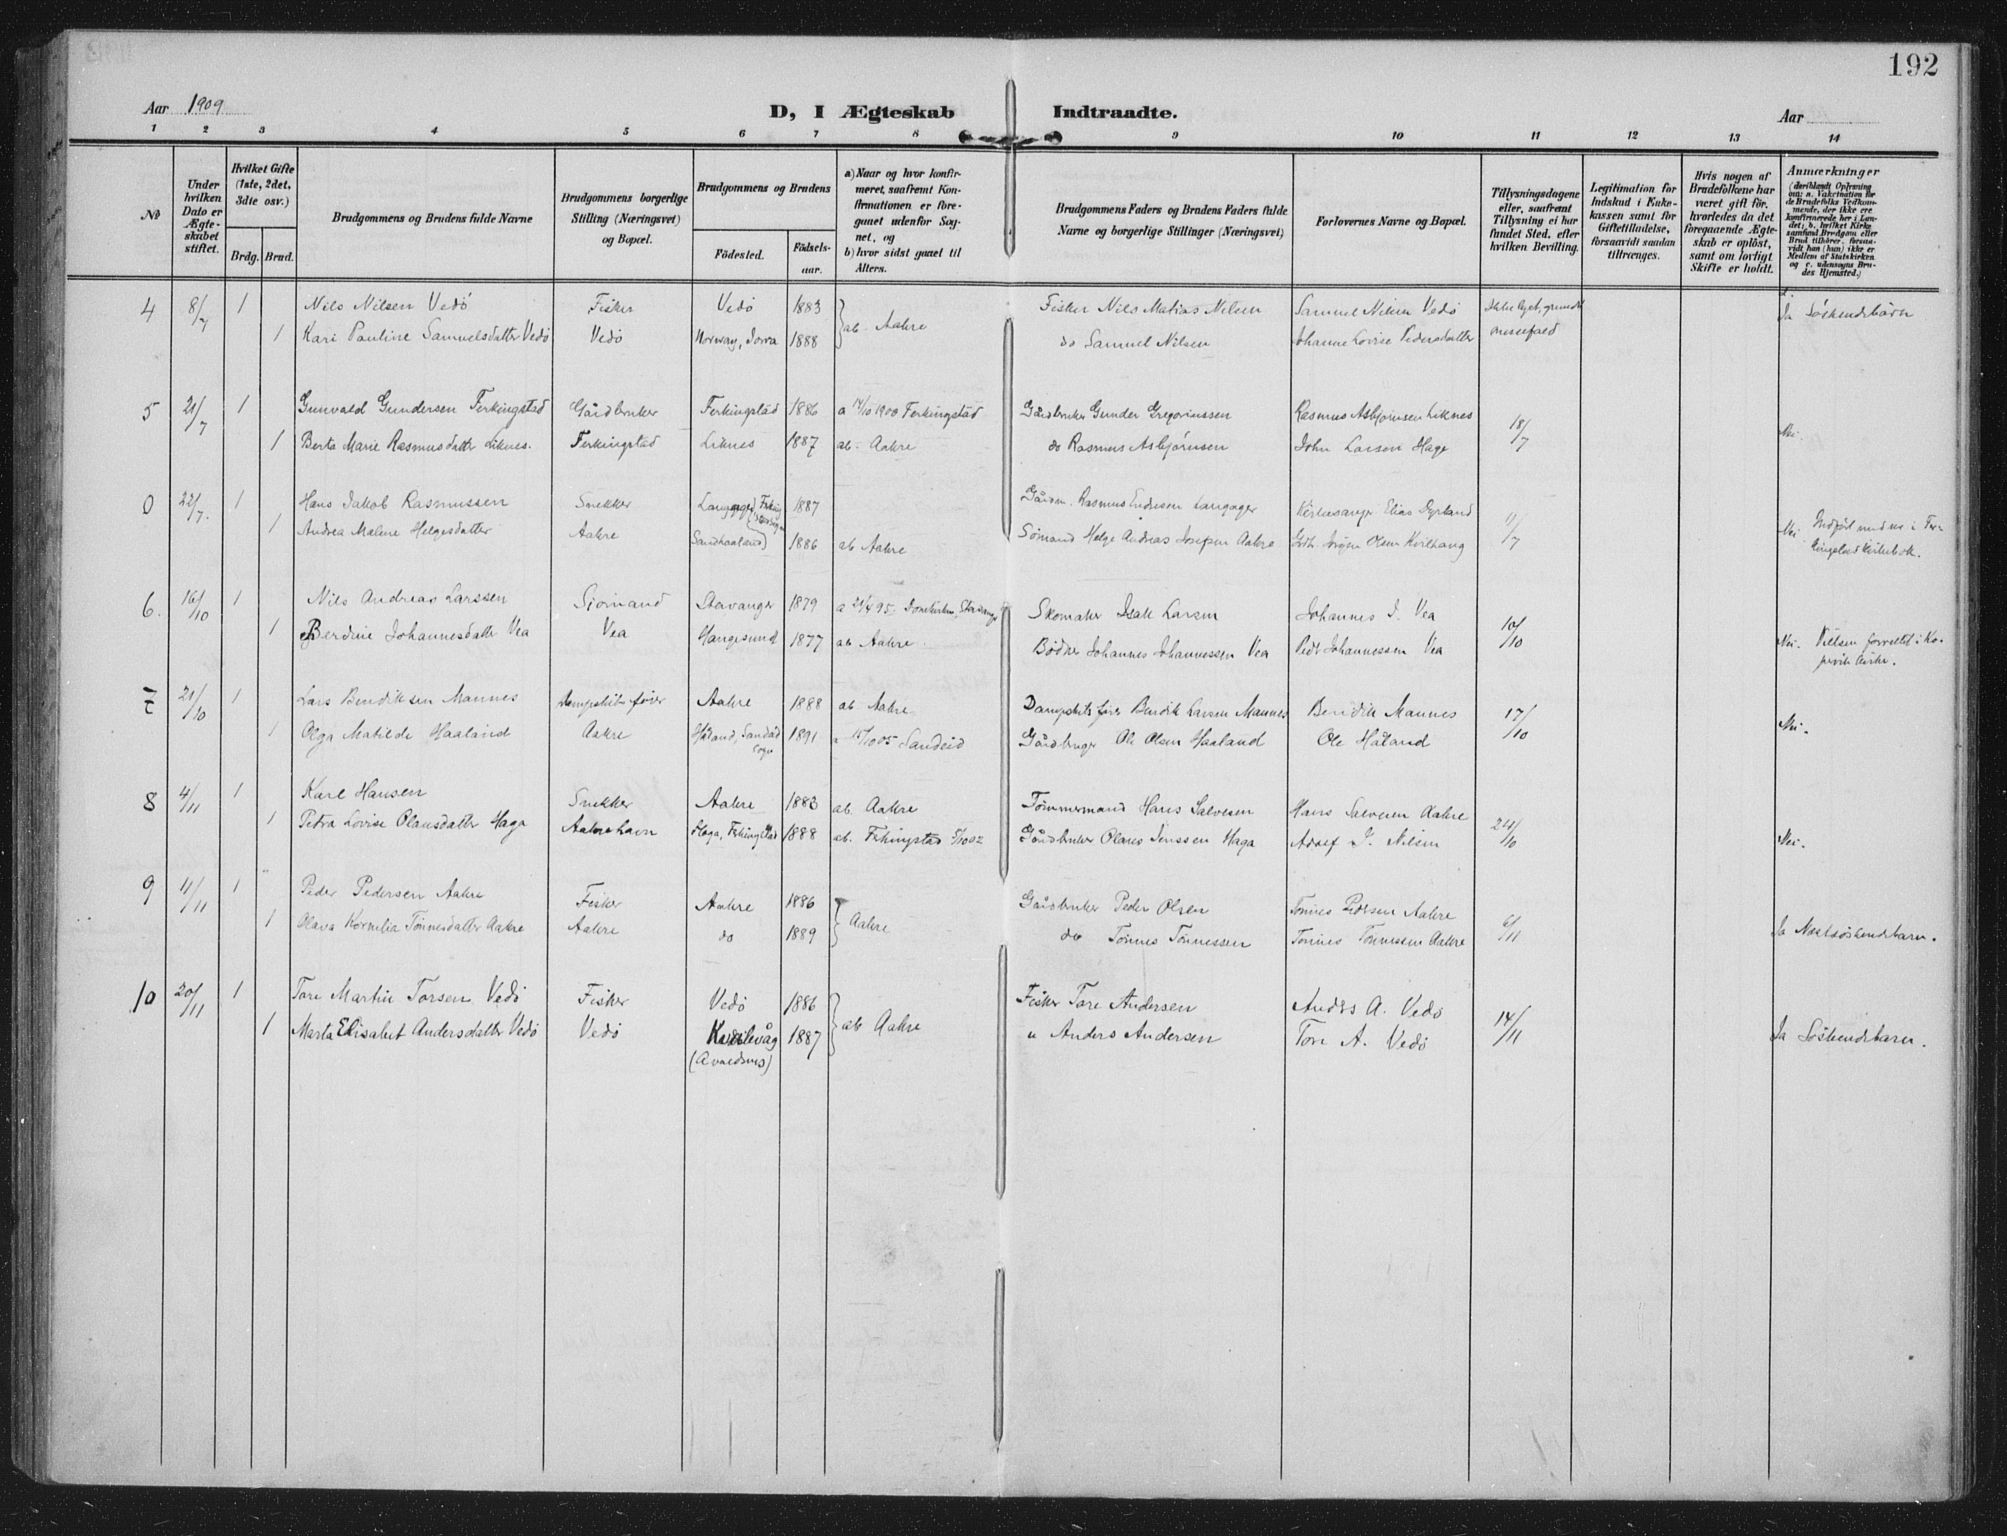 192
Aar 1909
D, I Ægteskab Indtraadte.
Aar
1 2 3 4 5 6 7 8 9 10 11 12 13 14
No
Under hvilken Dato er Ægteskabet stiftet.
Hvilket Gifte (1ste, 2det, 3die osv.)
Brdg. Brud.
Brudgommens og Brudens fulde Navne
Brudgommens borgerlige Stilling (Næringsvei) og Bopæl.
Brudgommens og Brudens
Födested. Födselsaar.
a) Naar og hvor konfirmeret, saafremt Konfirmationen er foregaaet udenfor Sognet, og
b) hvor sidst gaaet til Alters.
Brudgommens Faders og Brudens Faders fulde Navne og borgerlige Stillinger (Næringsvei)
Forlovernes Navne og Bopæl.
Tillysningsdagene eller, saafremt Tillysning ei har fundet Sted, efter hvilken Bevilling.
Legitimation for Indskud i Enkekassen samt for Giftetilladelse, forsaavidt saadan tiltrænges.
Hvis nogen af Brudefolkene har været gift för, hvorledes da det foregaaende Ægteskab er oplöst, samt om lovligt Skifte er holdt.
Anmærkninger
4 8/7 1 Nils Nilsen Vedö Fisker Vedö 1883 ab. Aakre Fisker Nils Matias Nilsen Samuel Nilsen Vedö Ja Söskendebarn
1 Kari Pauline Samuelsdatter Vedö Vedö Norway, Jowa 1888 do Samuel Nilsen Johanne Lovise Pedersdatter
5 21/7 1 Gunvald Gundersen Ferkingstad Gårdbruker Ferkingstad 1886 a 14/10 1900 Ferkingstad Gårdbruker Gunder Gregoriussen Rasmus Asbjörnsen Liknes 18/7 Nei.
1 Berta Marie Rasmusdatter Liknes. Ferkingstad Liknes 1887 ab. Aakre do Rasmus Asbjörnsen John Larsen Hage
0 22/7. 1 Hans Jakob Rasmussen Snekker 1887 Gårdm. Rasmus Endresen Langager Kirkesanger Elias Dyrland 11/7
1 Andrea Malene Helgesdatter Aakre Sandhaaland 1886 ab Aakre Sömand Helge Andreas Josefsen Aakre Gdb. Jörgen Olsen Kvilhaug Nei
6. 16/10 1 Nils Andreas Larssen Sjömand Stavanger 1879 a 21/4 95. Domkirken, Stavanger Skomaker Isak Larsen Johannes J. Vea 10/10
1 Berdine Johannesdatter Vea Vea Haugesund 1877 ab Aakre. Bödker Johannes Johannessen Vea Pedr Johannessen Vea Nei. Vielsen forrettet i Kopervik kirke.
7 21/10 1 Lars Bendiksen Mannes Dampskibsförer Aakre 1888 ab. Aakre. Dampskibsförer Bendik Larsen Mannes Bendik Mannes 17/10 Nei.
1 Olga Matilde Haaland Aakre Håland, Sandeid sogn 1891 a 15/10 05 Sandeid Gårdbruger Ole Olsen Haaland Ole Håland
8 4/11 1 Karl Hansen Snekker Aakre 1883 ab. Aakre Tömmermand Hans Salvesen Hans Salvesen Aakre 24/10
1 Petra Lovise Olausdatter Haga Aakrehavn Haga, Ferkingstad 1888 ab. Ferkingstad 5/10 02 Gårdbruker Olaus Jenssen Haga Adolf J. Nilsen Nei.
9 4/11 1 Peder Pedersen Aakre Fisker Aakre 1886 Aakre Gårdbruker Peder Olsen Tönnes Pedersen Aakre 6/11
1 Olava Kornelia Tönnesdatter Aakre Aakre do 1889 do Tönnes Tönnessen Tönnes Tönnessen Aakre Ja Næstsöskendebarn.
10 20/11 1 Tore Martin Torsen Vedö Fisker Vedö 1886 ab Aakre Fisker Tore Andersen Anders A. Vedö 14/11
1 Marta Elisabet Andersdatter Vedö Vedö 1887 " Anders Andersen Tore A. Vedö Ja Söskendebarn.
(Avaldsnes)